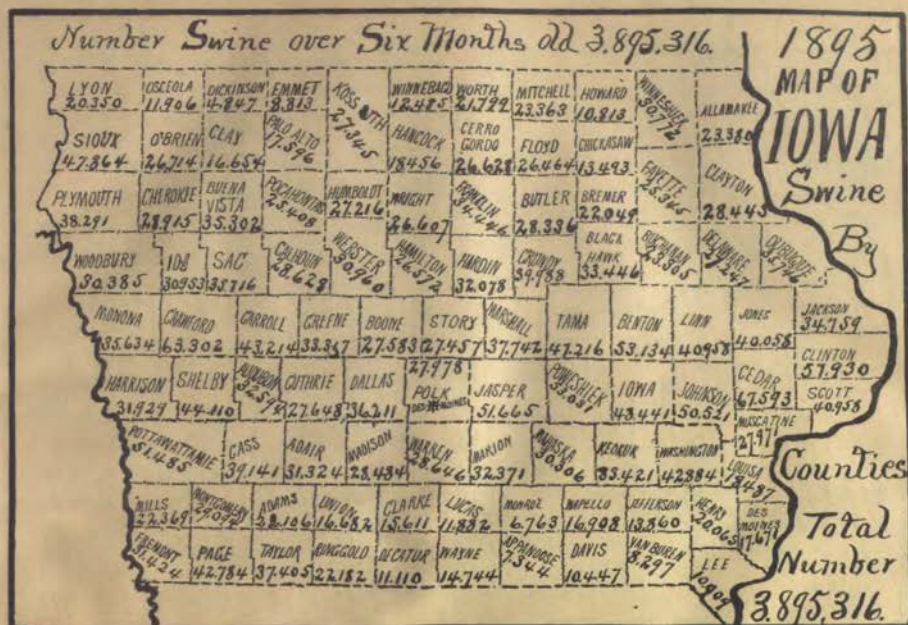 Number Swine over Six Months old 3.895,316.
1895
MAP OF
IOWA
Swine
By
Counties
Total
Number
3.895,316.
LYON
20.350
OSCEOLA
11.906
DICKINSON
4.847
EMMET
8.813
KOSSUTH
27.345
WINNEBAGO
12.485
WORTH
21.799
MITCHELL
23.363
HOWARD
10.813
WINNESHIEK
30.772
ALLAMAKEE
23.380
SIOUX
47.864
O'BRIEN
26.714
CLAY
16.654
PALO ALTO
17.596
HANCOCK
18456
CERRO
GORDO
26.628
FLOYD
26.464
CHICKASAW
13.493
FAYETTE
25.345
CLAYTON
28.445
PLYMOUTH
38.291
CHEROKEE
28.915
BUENA
VISTA
35.302
POCAHONTAS
25.408
HUMBOLDT
27.216
WRIGHT
26.607
FRANKLIN
34.446
BUTLER
28.336
BREMER
22.049
WOODBURY
30.385
IDA
30953
SAC
35716
CALHOUN
28.628
WEBSTER
30.960
HAMILTON
26.572
HARDIN
32.078
GRUNDY
39.988
BLACK
HAWK
33.446
BUCHANAN
23.305
DELAWARE
27.247
DUBUQUE
35.746
MONONA
35.634
CRAWFORD
63.302
CARROLL
43.214
GREENE
BOONE
27.583
STORY
27.457
MARSHALL
37.742
TAMA
47.216
BENTON
53.134
LINN
40958
JONES
40.058
JACKSON
34.759
CLINTON
57.930
HARRISON
31.929
SHELBY
44.110
AUDUBON
GUTHRIE
27.648
DALLAS
36.211
27.978
POLK
DES MOINES
JASPER
51.665
POWESHIEK
33.031
IOWA
48.441
JOHNSON
50.521
CEDAR
67.593
SCOTT
40.958
MUSCATINE
27.971
POTTAWATTAMIE
51.485
CASS
39.141
ADAIR
31.324
MADISON
28.484
WARREN
28.646
MARION
32.371
MAHASKA
30.306
KEOKUK
35.421
WASHINGTON
42884
LOUISA
19.487
MILLS
22.369
MONTGOMERY
29.094
ADAMS
28.106
UNION
16.682
CLARKE
15.611
LUCAS
11.882
MONROE
6.763
WAPELLO
16.908
JEFFERSON
13.860
HENRY
20.065
DES
MOINES
17.671
FREMONT
31.424
PAGE
42.784
TAYLOR
37.405
RINGGOLD
22.182
DECATUR
11.110
WAYNE
14.744
APPANOOSE
7.344
DAVIS
10.447
VAN BUREN
8.297
LEE
10.909